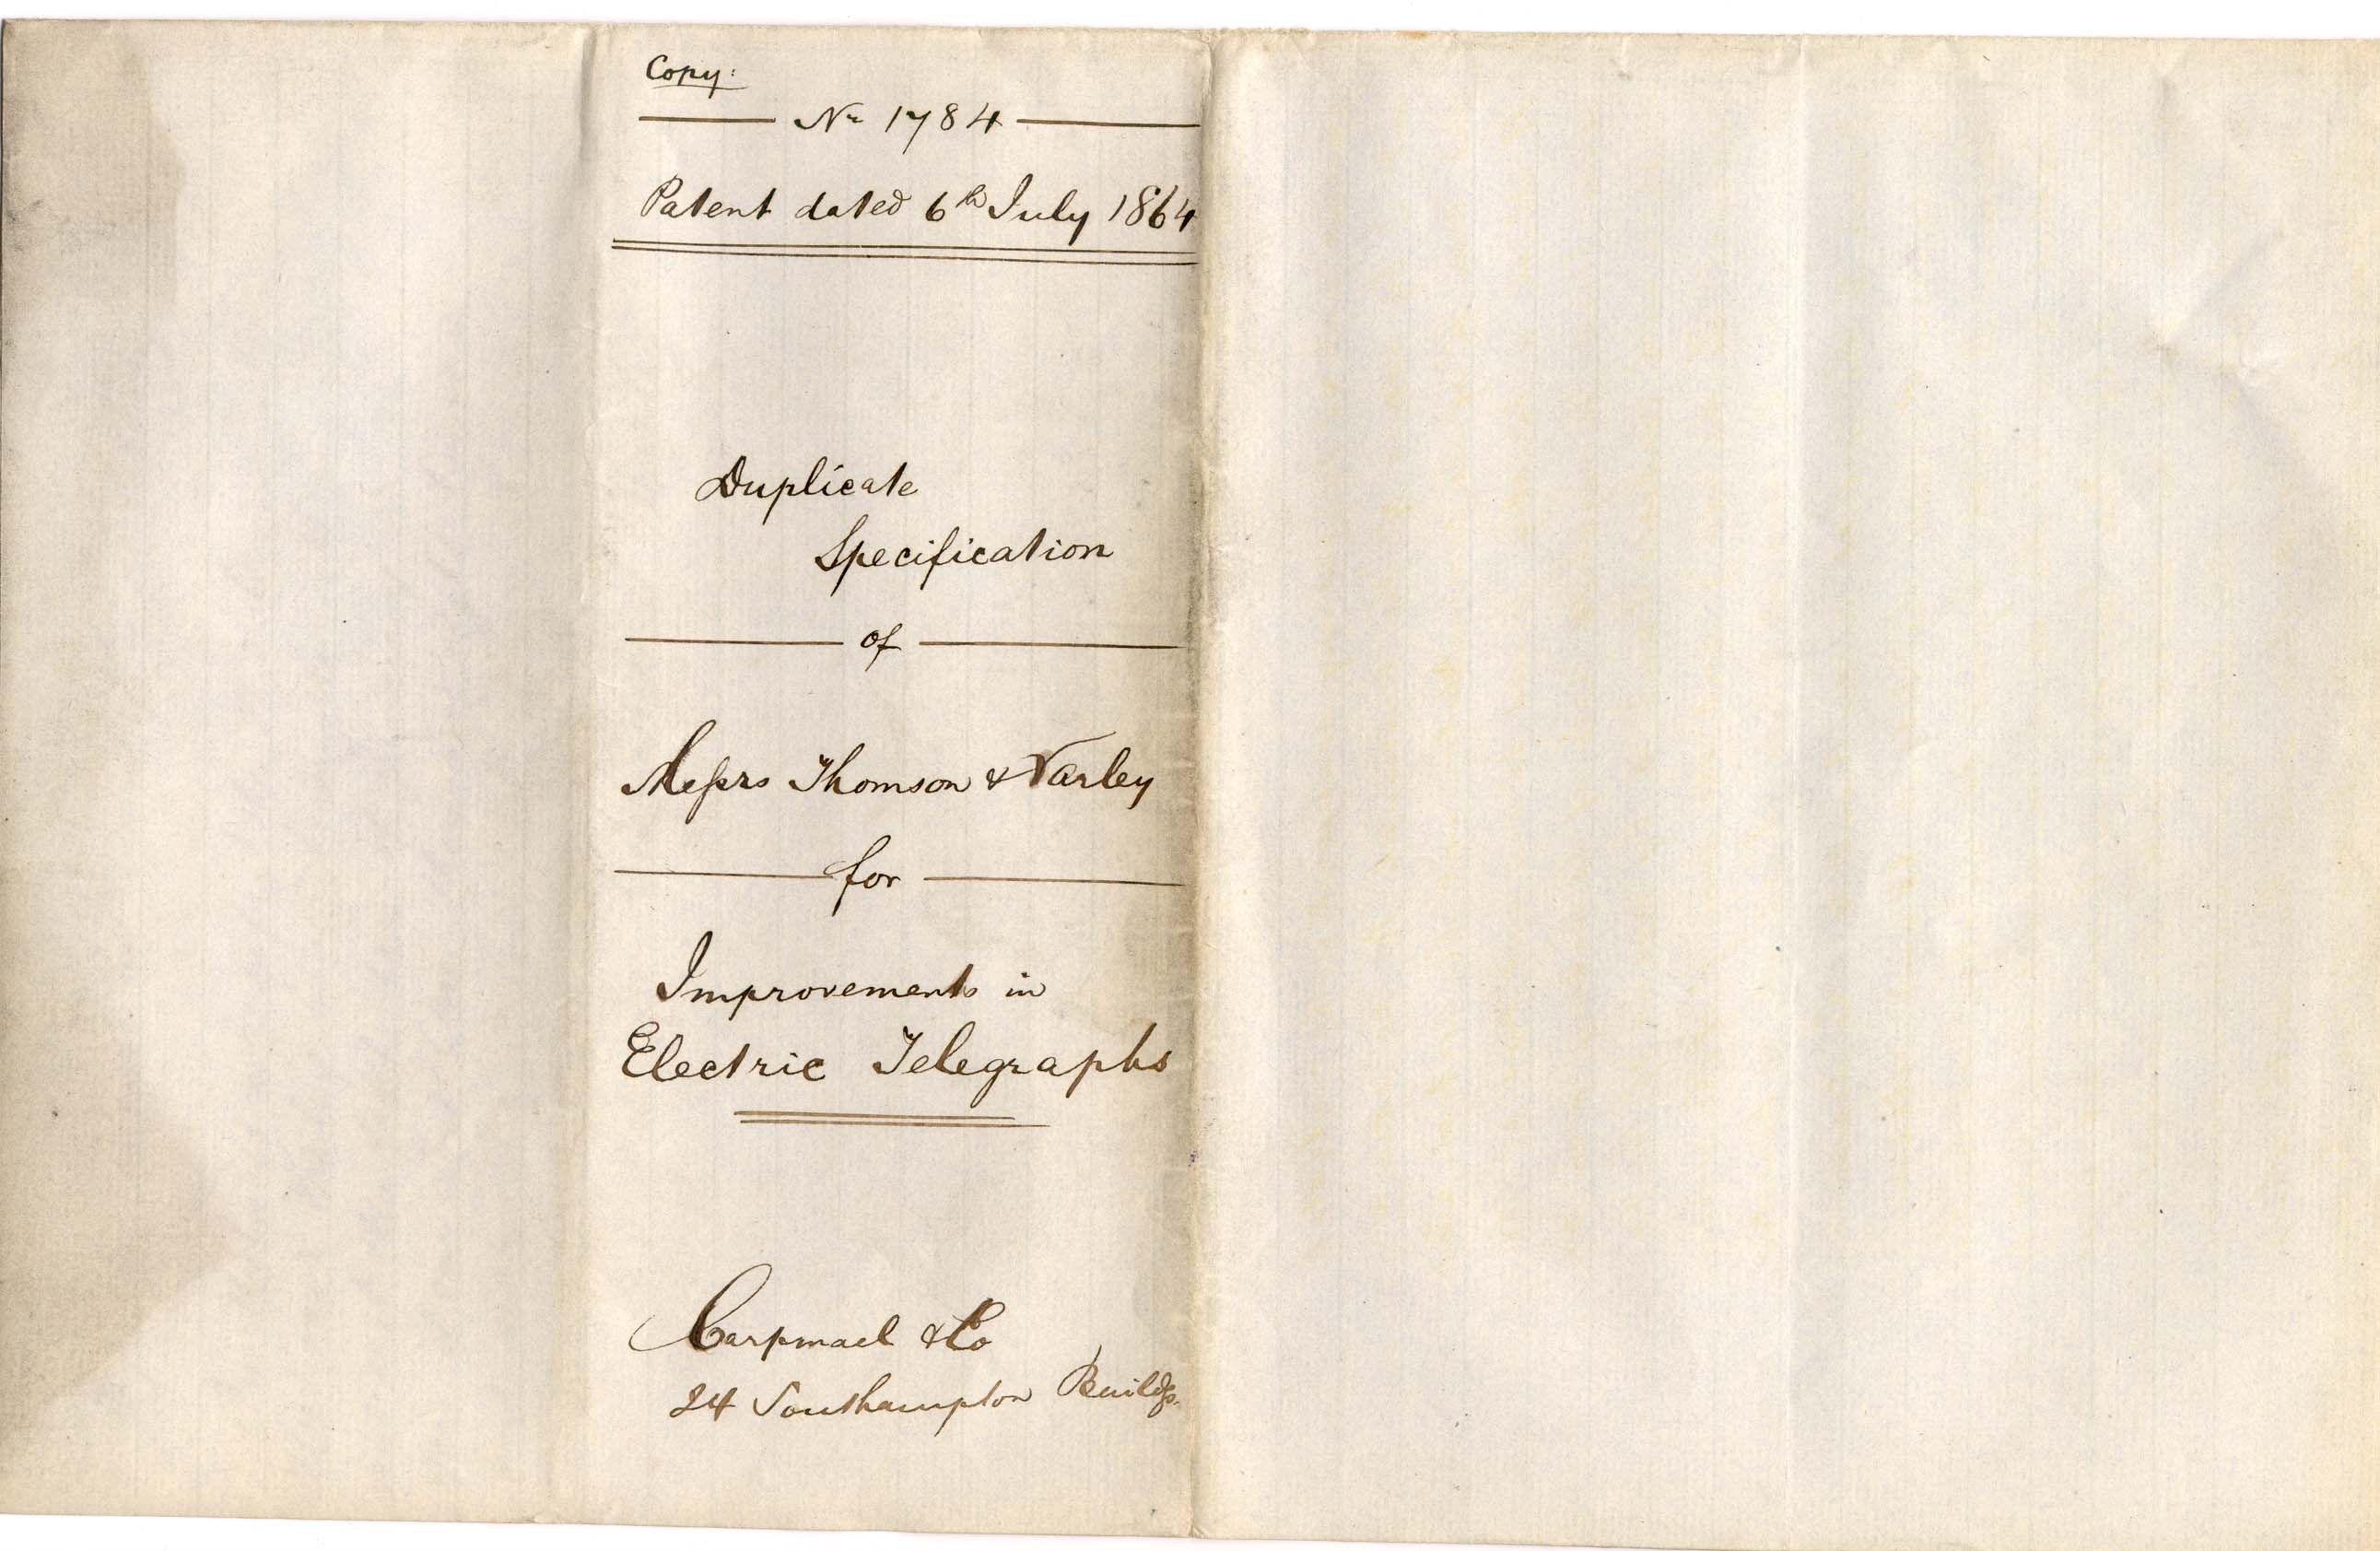 Copy:
No 1784
Patent dated 6th July 1864
Duplicate
Specification
of
Messrs Thomson & Varley
for
Improvements in
Electric Telegraphs
Carpmael & Co
24 Southampton Buildgs.